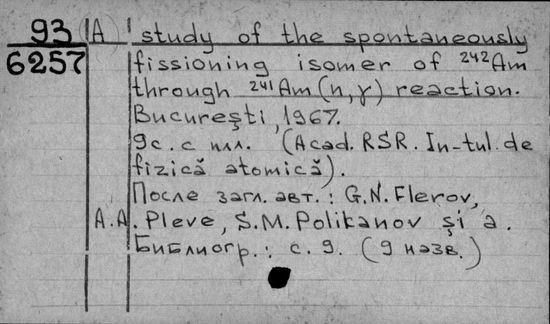 93 A study of the spontaneously
6257 fissioning isomer of ²⁴²Am
through ²⁴¹Am (n, γ) reaction.
Bucureşti, 1967.
9с. с илл. (Acad. RSR. In-tul de
fizică atomică).
После загл. авт.: G.N. Flerov,
A.A. Pleve, S.M. Polikanov şi a.
Библиогр.: с. 9. (9 назв.)